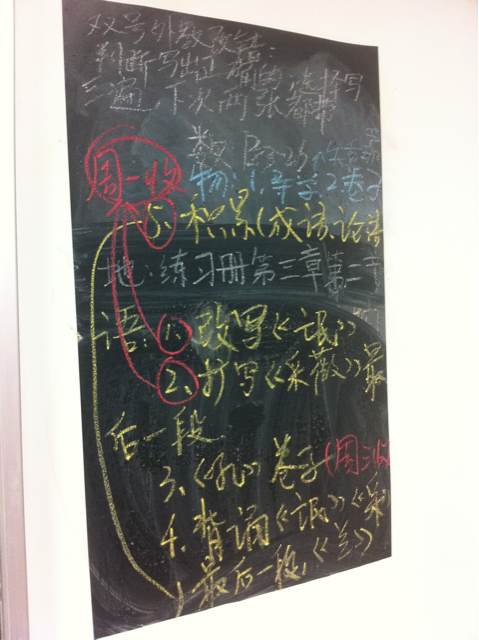 双号外教改错
判断写出正确的选择写
三遍,下次两张都带
数 P23-25
周一收 物:1.导学2.卷子
5.积累(成语、论语
地:练习册第三章第二节
语:1.改写《氓》
2.抄写《采薇》最
后一段
3.《氓》卷子(周三收
4.背诵《氓》《采
最后一段,《兰》